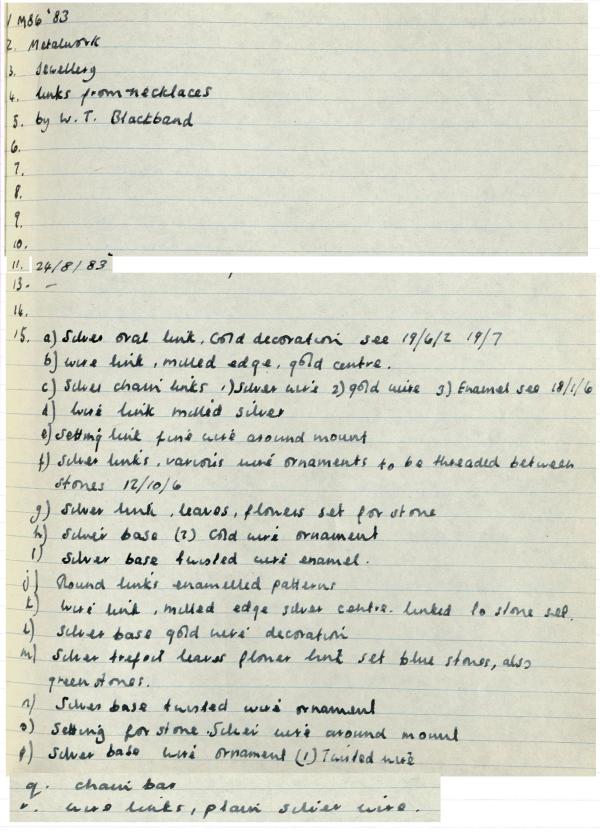 1 M86'83
2. Metalwork
3. Jewellery
4. links from necklaces
5. by W. T. Blackband
6.
7.
8.
9.
10.
11. 24/8/83
13. -
14.
15. a) Silver oval link, Gold decoration see 19/6/2 19/7
b) wire link, milled edge, gold centre.
c) Silver chain links 1) Silver wire 2) gold wire 3) Enamel see 18/1/6
d) Wire link milled silver
e) Setting link fine wire around mount
f) Silver links, various wire ornaments to be threaded between
stones 12/10/6
g) Silver link, leaves, flowers set for stone
h) Silver base (2) Gold wire ornament
i) Silver base twisted wire enamel.
j) Round links enamelled patterns
k) Wire link, milled edge silver centre. linked to stone set.
l) Silver base gold wire decoration
m) Silver trefoil leaves flower link set blue stones, also
green stones.
n) Silver base twisted wire ornament
o) Setting for stone. Silver wire around mount
p) Silver base wire ornament (1) Twisted wire
q. chain bar
r. wire links, plain silver wire.